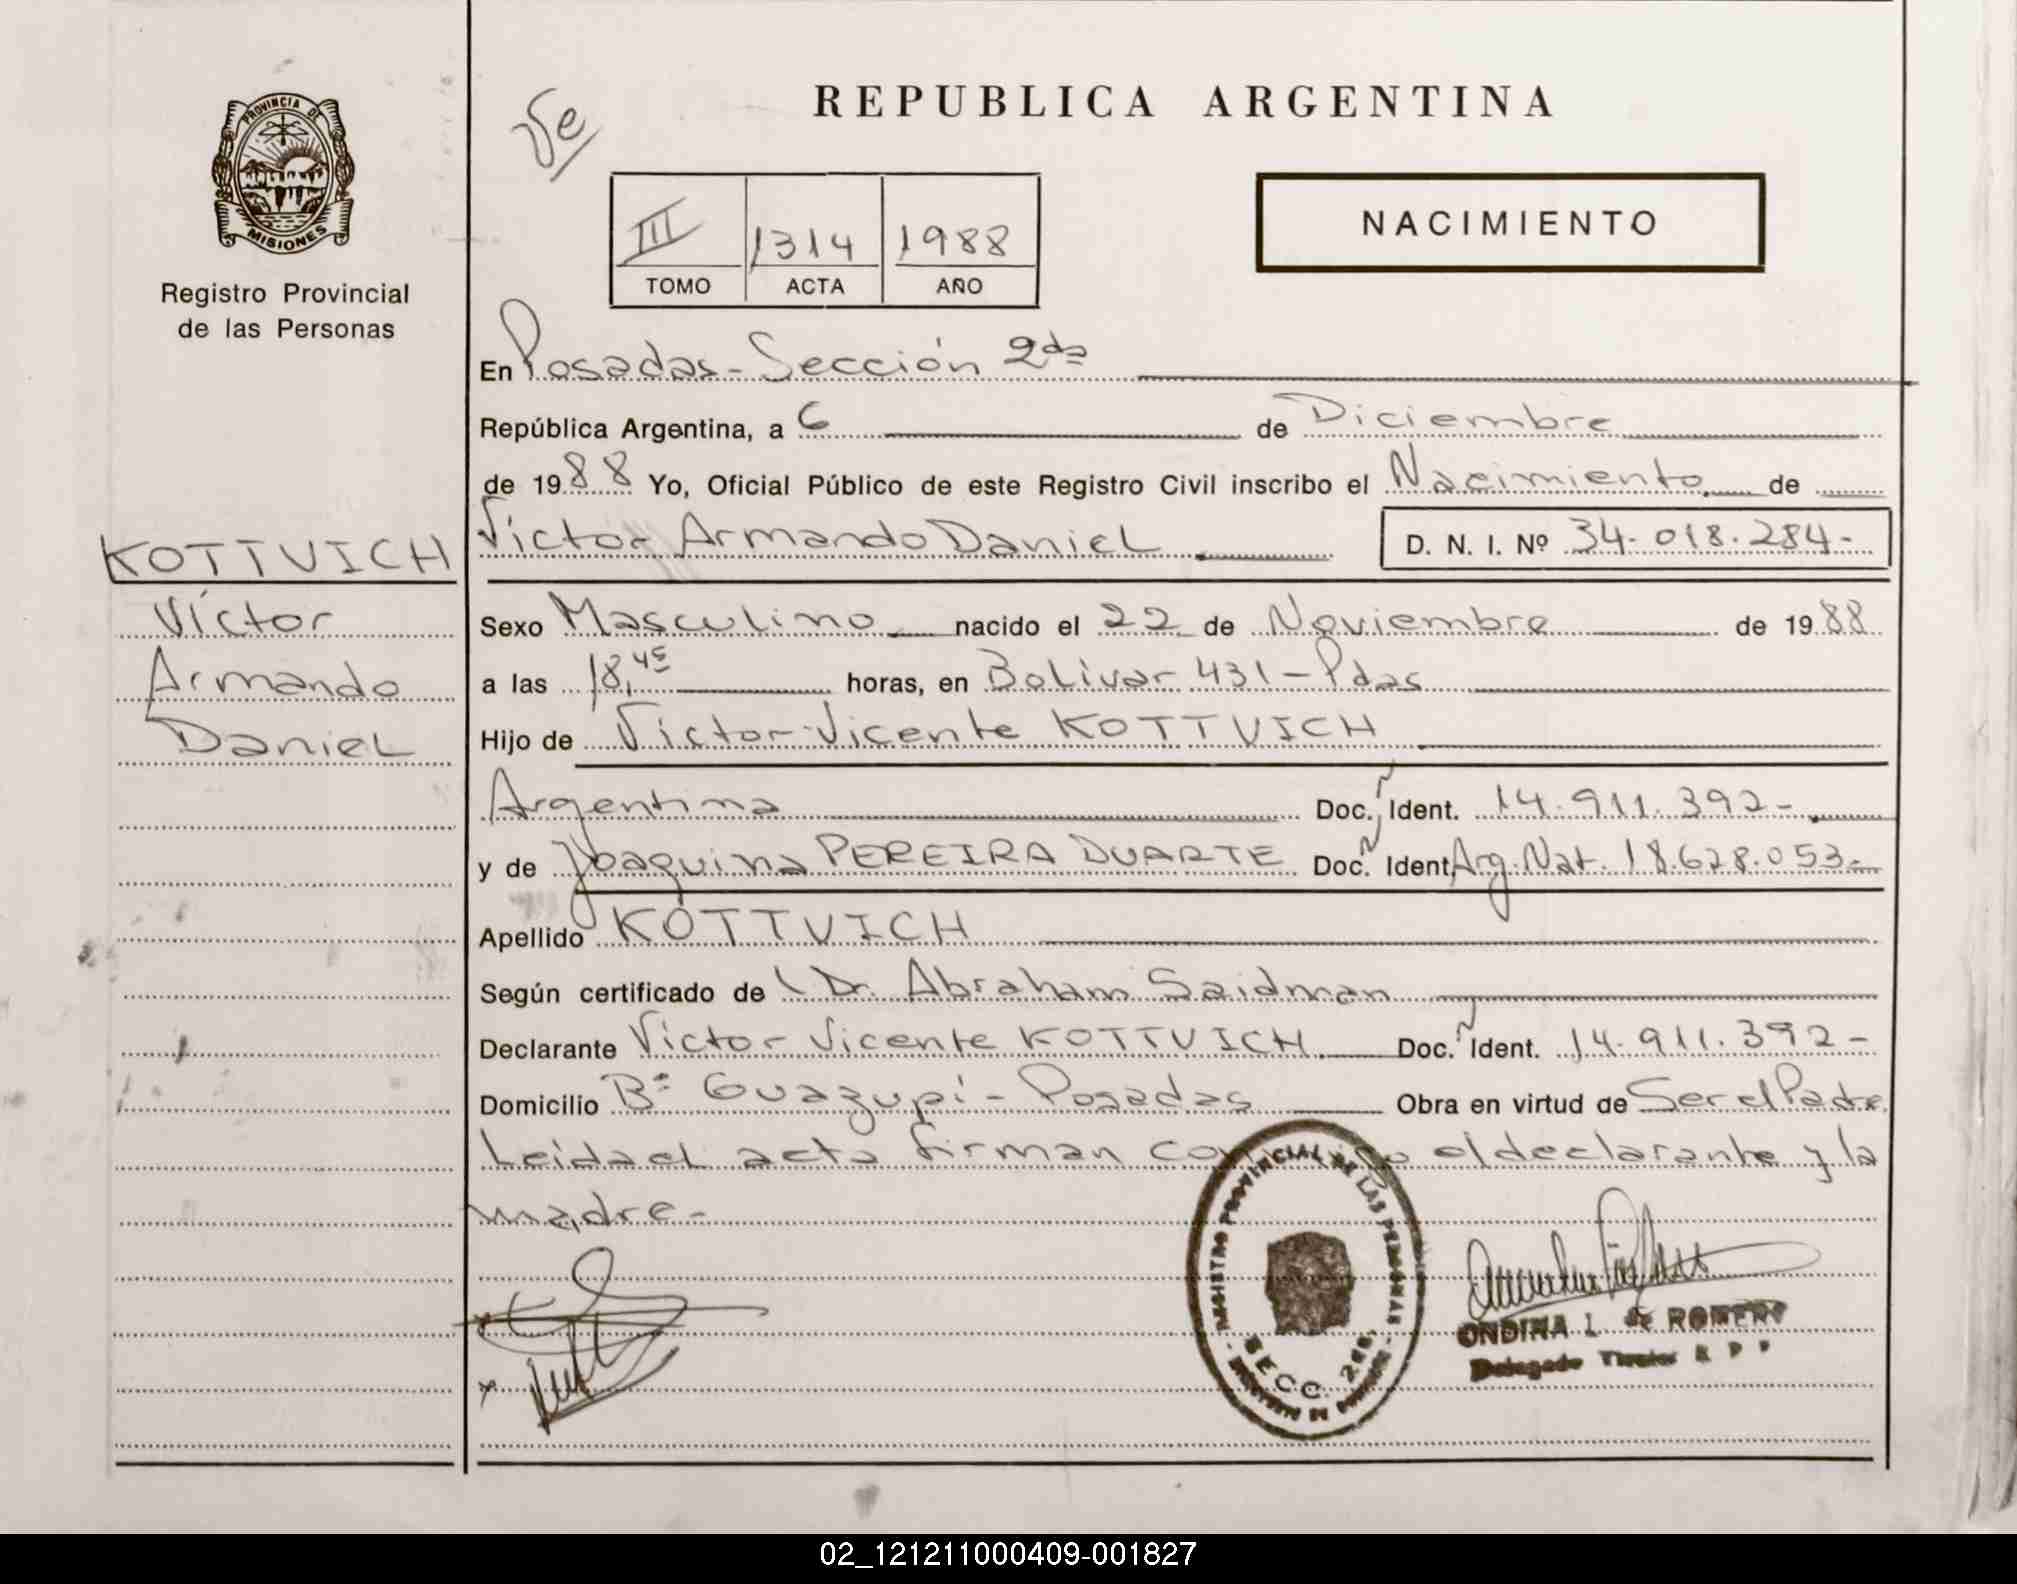 REPUBLICA ARGENTINA
PROVINCIA DE
MISIONES
Registro Provincial
de las Personas
Ve
III 1314 1988
TOMO ACTA AÑO
NACIMIENTO
En Posadas - Sección 2da
República Argentina, a 6 de Diciembre
de 1988 Yo, Oficial Público de este Registro Civil inscribo el Nacimiento de
Víctor Armando Daniel D. N. I. Nº 34.018.284-
KOTTVICH
Víctor
Armando
Daniel
Sexo Masculino nacido el 22 de Noviembre de 1988
a las 18,45 horas, en Bolivar 431 - Pdas
Hijo de Víctor Vicente KOTTVICH
Argentina Doc. Ident. 14.911.392-
y de Joaquina PEREIRA DUARTE Doc. Ident. Arg. Nat. 18.628.053-
Apellido KOTTVICH
Según certificado de Dr. Abraham Saidman
Declarante Víctor Vicente KOTTVICH Doc. Ident. 14.911.392-
Domicilio Bº Guazupí - Posadas Obra en virtud de Ser el Padre
Leida el acta firman el declarante y la
madre-
REGISTRO PROVINCIAL DE LAS PERSONAS
SECC. 2da.
ONDINA L. de ROMERO
Delegado Titular R P P
02_121211000409-001827